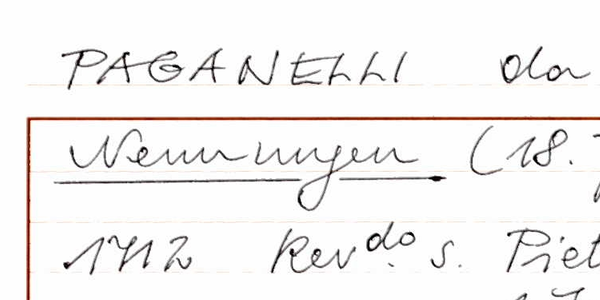 PAGANELLI da
Nennungen (18.
1712 Rev.do S. Piet